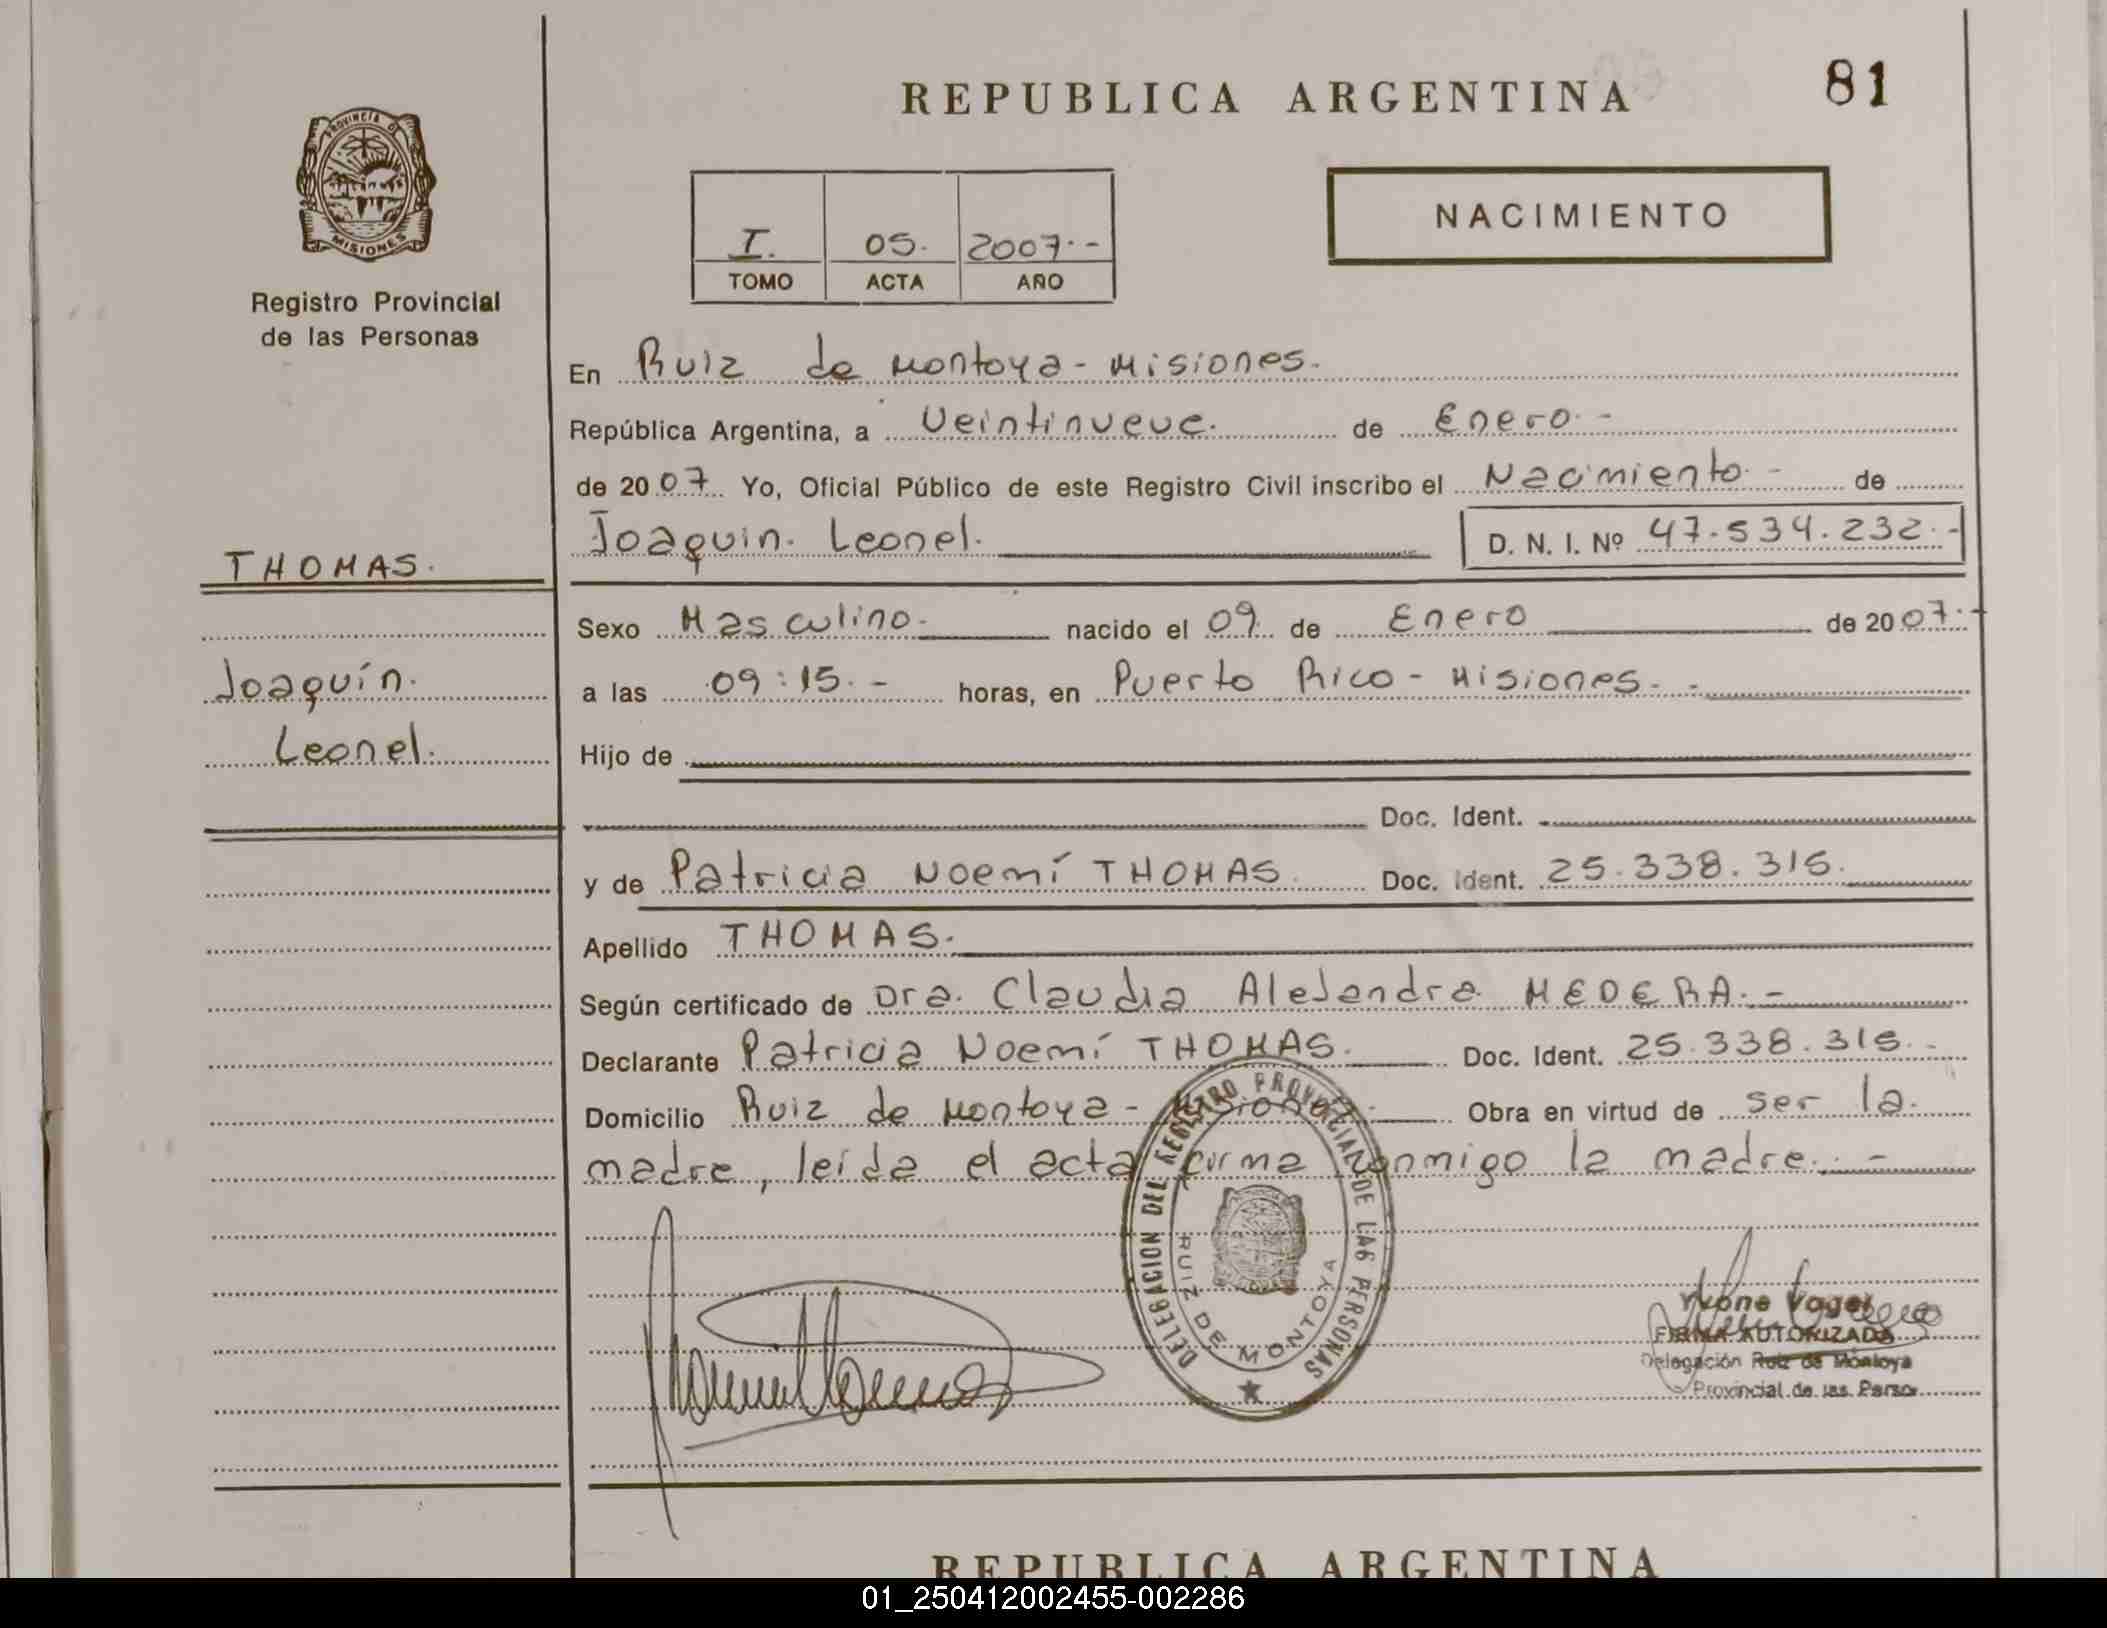 REPUBLICA ARGENTINA
81
PROVINCIA DE
MISIONES
Registro Provincial
de las Personas
I. 05. 2007.-
TOMO ACTA AÑO
NACIMIENTO
En Ruiz de Montoya - Misiones.
República Argentina, a Veintinueve. de Enero.-
de 2007 Yo, Oficial Público de este Registro Civil inscribo el Nacimiento.- de
Joaquin. Leonel. D. N. I. Nº 47.534.232.-
THOMAS.
Joaquín.
Leonel.
Sexo Masculino.- nacido el 09 de Enero de 2007.-
a las 09:15.- horas, en Puerto Rico - Misiones.-
Hijo de
Doc. Ident.
y de Patricia Noemí THOMAS. Doc. Ident. 25.338.315.
Apellido THOMAS.
Según certificado de Dra. Claudia Alejandra MEDERA.-
Declarante Patricia Noemí THOMAS. Doc. Ident. 25.338.315.-
Domicilio Ruiz de Montoya - Misiones.- Obra en virtud de ser la
madre, leída el acta firma conmigo la madre.-
DELEGACION DEL REGISTRO PROVINCIAL DE LAS PERSONAS
RUIZ DE MONTOYA
Yvone Vogel
FIRMA AUTORIZADA
Delegación Ruiz de Montoya
Provincial de las Perso
REPUBLICA ARGENTINA
01_250412002455-002286